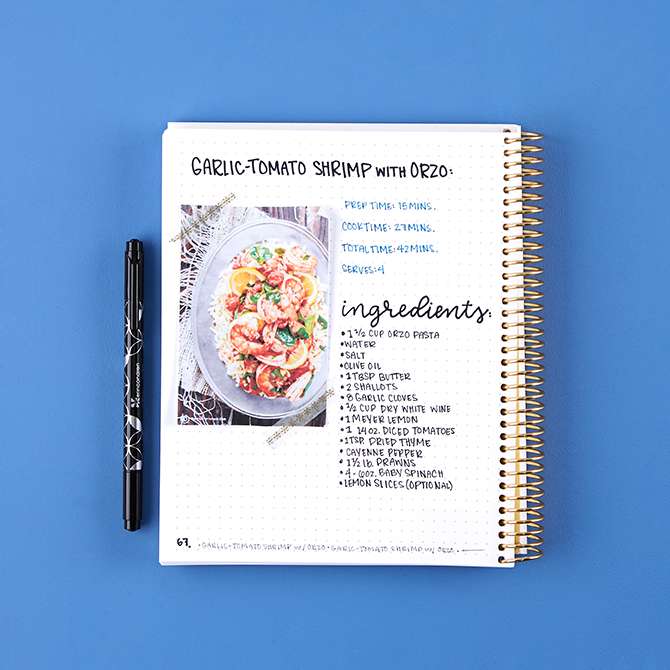 GARLIC-TOMATO SHRIMP WITH ORZO:
PREP TIME: 15 MINS.
COOK TIME: 27 MINS.
TOTAL TIME: 42 MINS.
SERVES: 4
ingredients:
• 1 ½ CUP ORZO PASTA
• WATER
• SALT
• OLIVE OIL
• 1 TBSP BUTTER
• 2 SHALLOTS
• 8 GARLIC CLOVES
• ½ CUP DRY WHITE WINE
• 1 MEYER LEMON
• 1 14 OZ. DICED TOMATOES
• 1 TSP. DRIED THYME
• CAYENNE PEPPER
• 1 ½ lb. PRAWNS
• 4-6 OZ. BABY SPINACH
• LEMON SLICES (OPTIONAL)
67. • GARLIC-TOMATO SHRIMP W/ ORZO • GARLIC-TOMATO SHRIMP W/ ORZO •
#elcerincondren